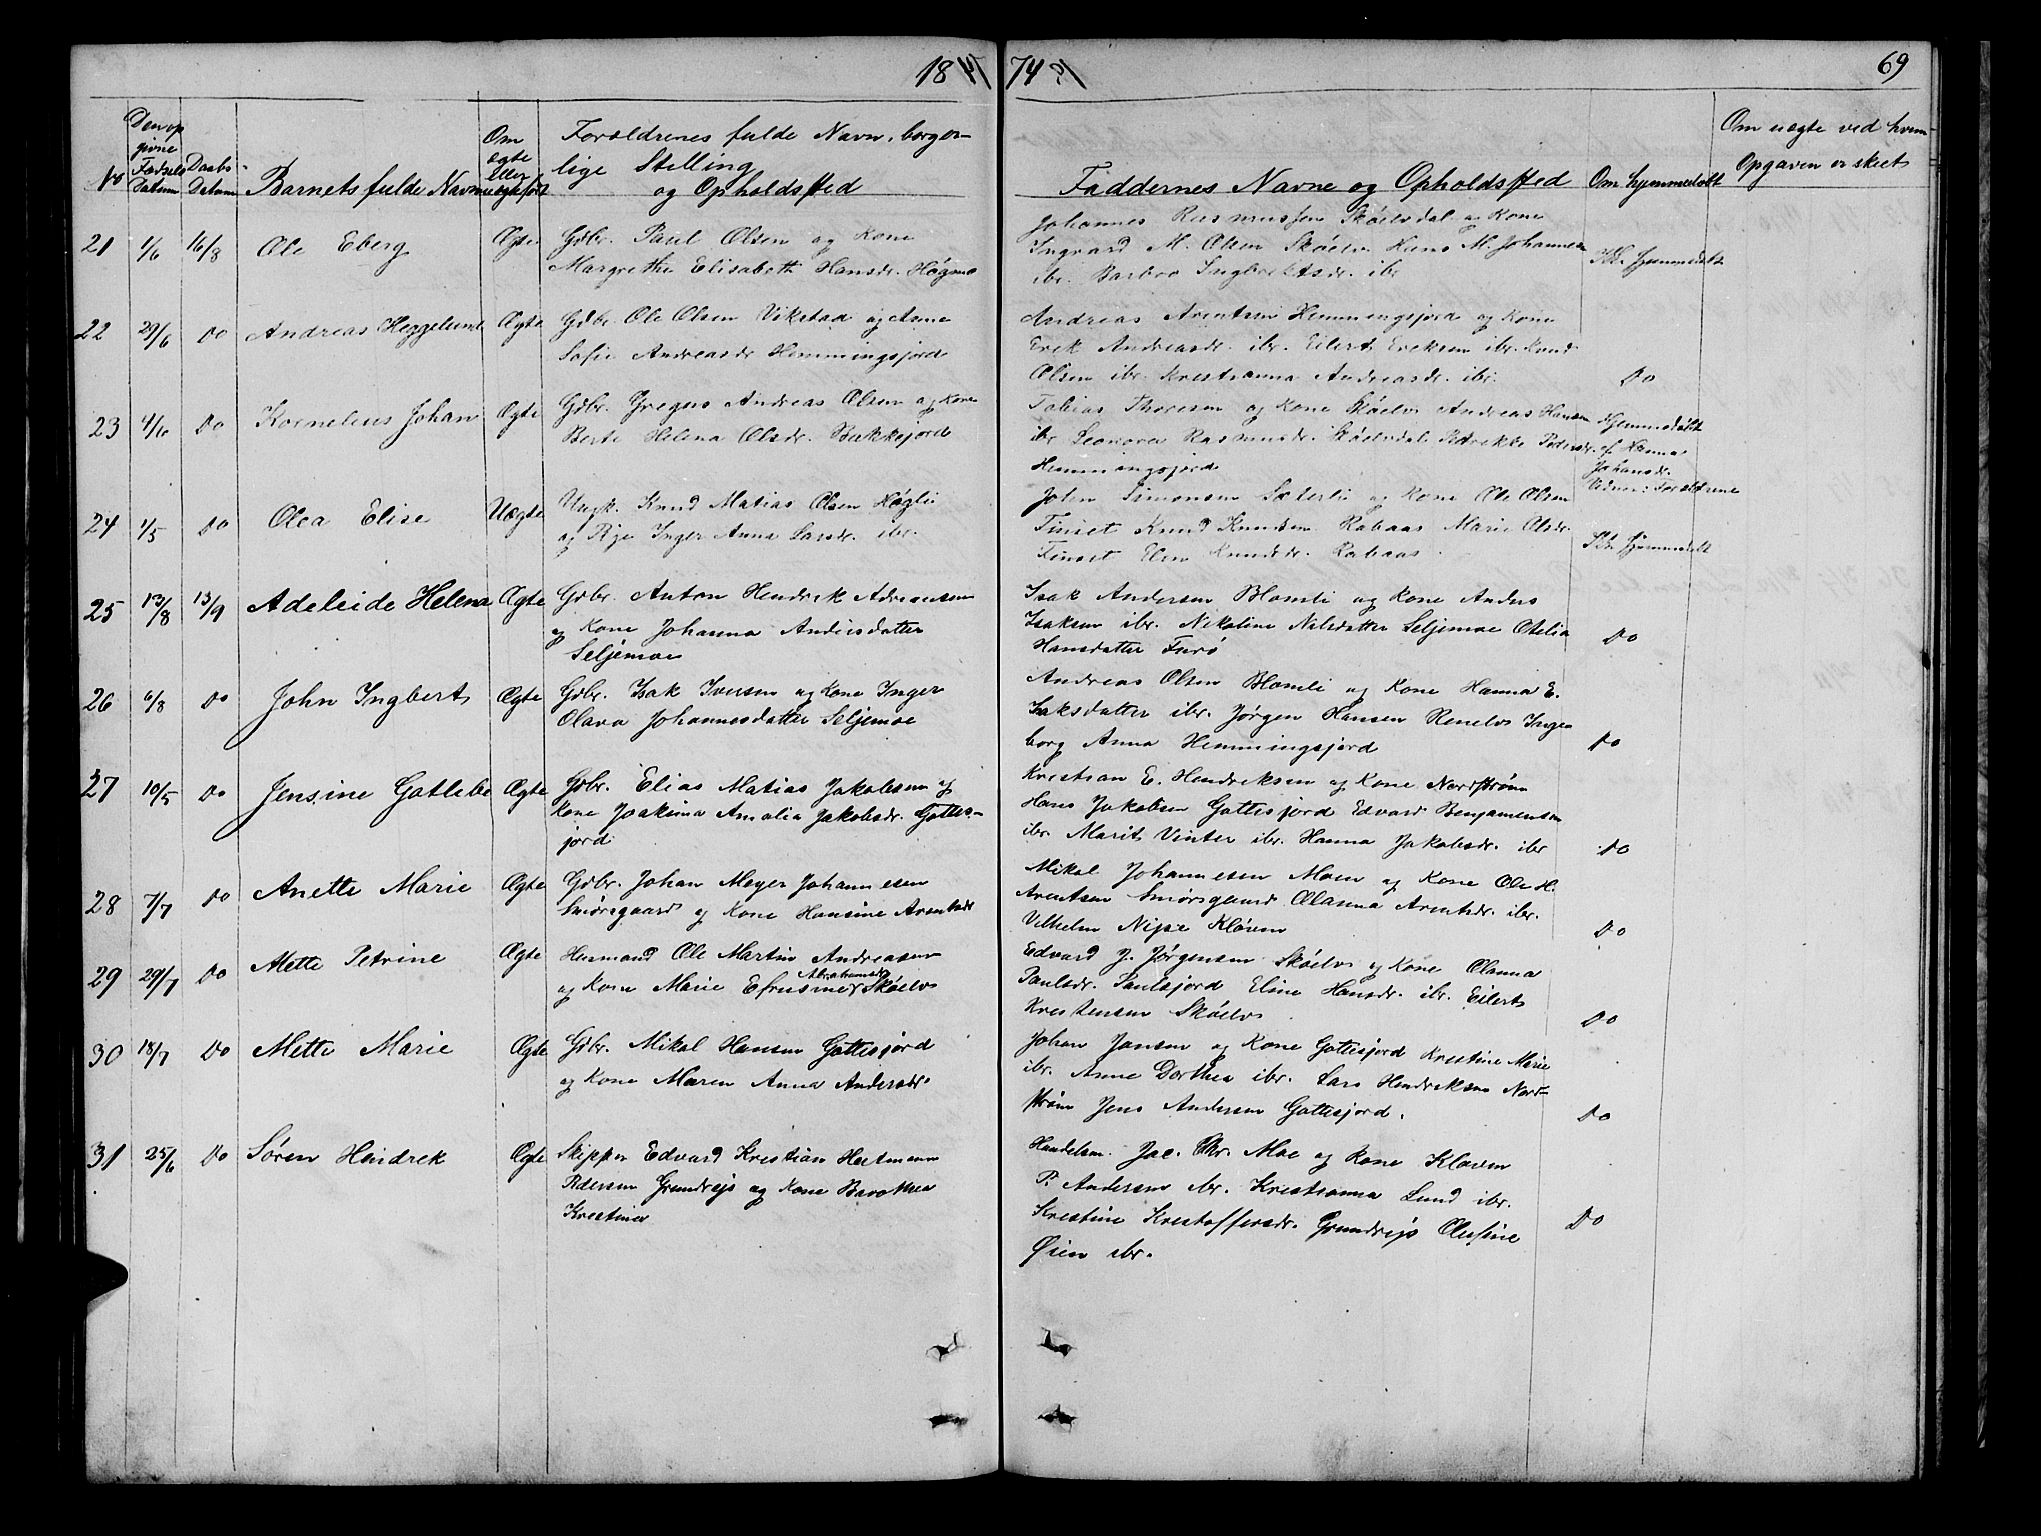 18 74
69
No
Den op
givne
Fødsels
Datum
Daabs-
Datum
Barnets fulde Navn
Om
ægte
eller
uægte født
Forældrenes fulde Navn, borger-
lige Stilling
og Opholdssted
Faddernes Navne og Opholdssted
Om hjemmedøbt
Om uægte ved hvem
Opgaven er skeet
21 1/6 16/8 Ole Eberg Ægte Gdbr. Paul Olsen og Kone
Margrethe Elisabeth Hansdr. Høgmo
Johannes Rasmussen Skøelvdal og Kone
Ingvard M. Olsen Skøelv Hans M. Johannesen
ibr. Barbro Ingbrektsdr. ibr
Ikke hjemmedøbt
22 29/6 Do Andreas Heggelund Ægte Gdbr Ole Olsen Vikstad og Anne
Sofie Andreasdr Hemmingsjord
Andreas Arentsen Hemmingsjord og Kone
Erek Andreasdr. ibr. Eilert Ereksen ibr. Knud
Olsen ibr. Krestianna Andreasdr. ibr.
Do
23 4/6 Do Kornelius Johan Ægte Gdbr. Gregus Andreas Olsen og Kone
Berte Helena Olsdr. Bakkejord
Tobias Thoresen og Kone Skøelv Andreas Hansen
ibr Leonora Rasmusdr. Skøelvdal Petrekke Pedersdr.
Hemmingsjord
Hjemmedøbt
af Hanna
Johansdr.
Vidner: Forældrene
24 1/5 Do Olea Elise Uægte Ungk. Knud Matias Olsen Høgli
og Pige Inger Anna Larsdr. ibr.
John Simonsen Sæterli og Kone Ole Olsen
Finset Knud Knudsen Rabaas Marie Olsdr.
Finset Elen Knudsdr. Rabaas.
Ikke hjemmedøbt
25 13/8 13/9 Adeleide Helena Ægte Gdbr. Anton Hendrek Adreansen
og Kone Johanna Andersdatter
Seljemoe
Isak Andersen Blomli og Kone Anders
Isaksen ibr. Nikoline Nilsdatter Seljemoe Otelia
Hansdatter Furø
Do
26 6/8 Do John Ingbert Ægte Gdbr. Isak Iversen og Kone Inger
Olava Johannesdatter Seljemoe
Andreas Olsen Blomli og Kone Hanna E.
Isaksdatter ibr. Jørgen Hansen Renelv Inge
borg Anna Hemmingsjord
Do
27 10/5 Do Jensine Gotlibe Ægte Gdbr. Elias Matias Jakobsen og
Kone Joakima Amalia Jakobsdr. Gottes-
jord
Krestian E. Hendriksen og Kone Nordstrøm
Hans Jakobsen Gottesjord Edvard Benjamensen
ibr. Marit Vinter ibr. Hanna Jakobsdr. ibr
Do
28 7/7 Do Anette Marie Ægte Gdbr. Johan Meyer Johannesen
Smørsgaard og Kone Hansine Arentsdr
Mikal Johannesen Moen og Kone Ole H.
Arentsen Smørsgaard Olanna Arentsdr. ibr.
Vilhelm Nipe Kløven
Do
29 29/7 Do Mette Petrine Ægte Husmand Ole Martin Andreasen
og Kone Marie Efrusine Abrahamsdr Skøelv
Edvard J. Jørgensen Skøelv og Kone Olanna
Paulsdr. Paulsjord Eline Hansdr. ibr. Eilert
Krestensen Skøelv
Do
30 18/7 Do Mette Marie Ægte Gdbr. Mikal Hansen Gottesjord
og Kone Maren Anna Andersdr.
Johan Jansen og Kone Gottesjord Krestine Marie
ibr. Anne Dorthea ibr. Lars Hendreksen Nord-
strøm Jens Andersen Gottesjord.
Do
31 25/6 Do Søren Hendrek Ægte Skipper Edvard Krestian Hartmann
Pedersen Grundrejs og Kone Barothea
Krestina
Handelsm. Jac. Chr. Moe og Kone Kløven
P. Andersen ibr. Krestianna Lund ibr.
Krestine Krestoffersdr. Grundrejs Olufine
Øien ibr.
Do